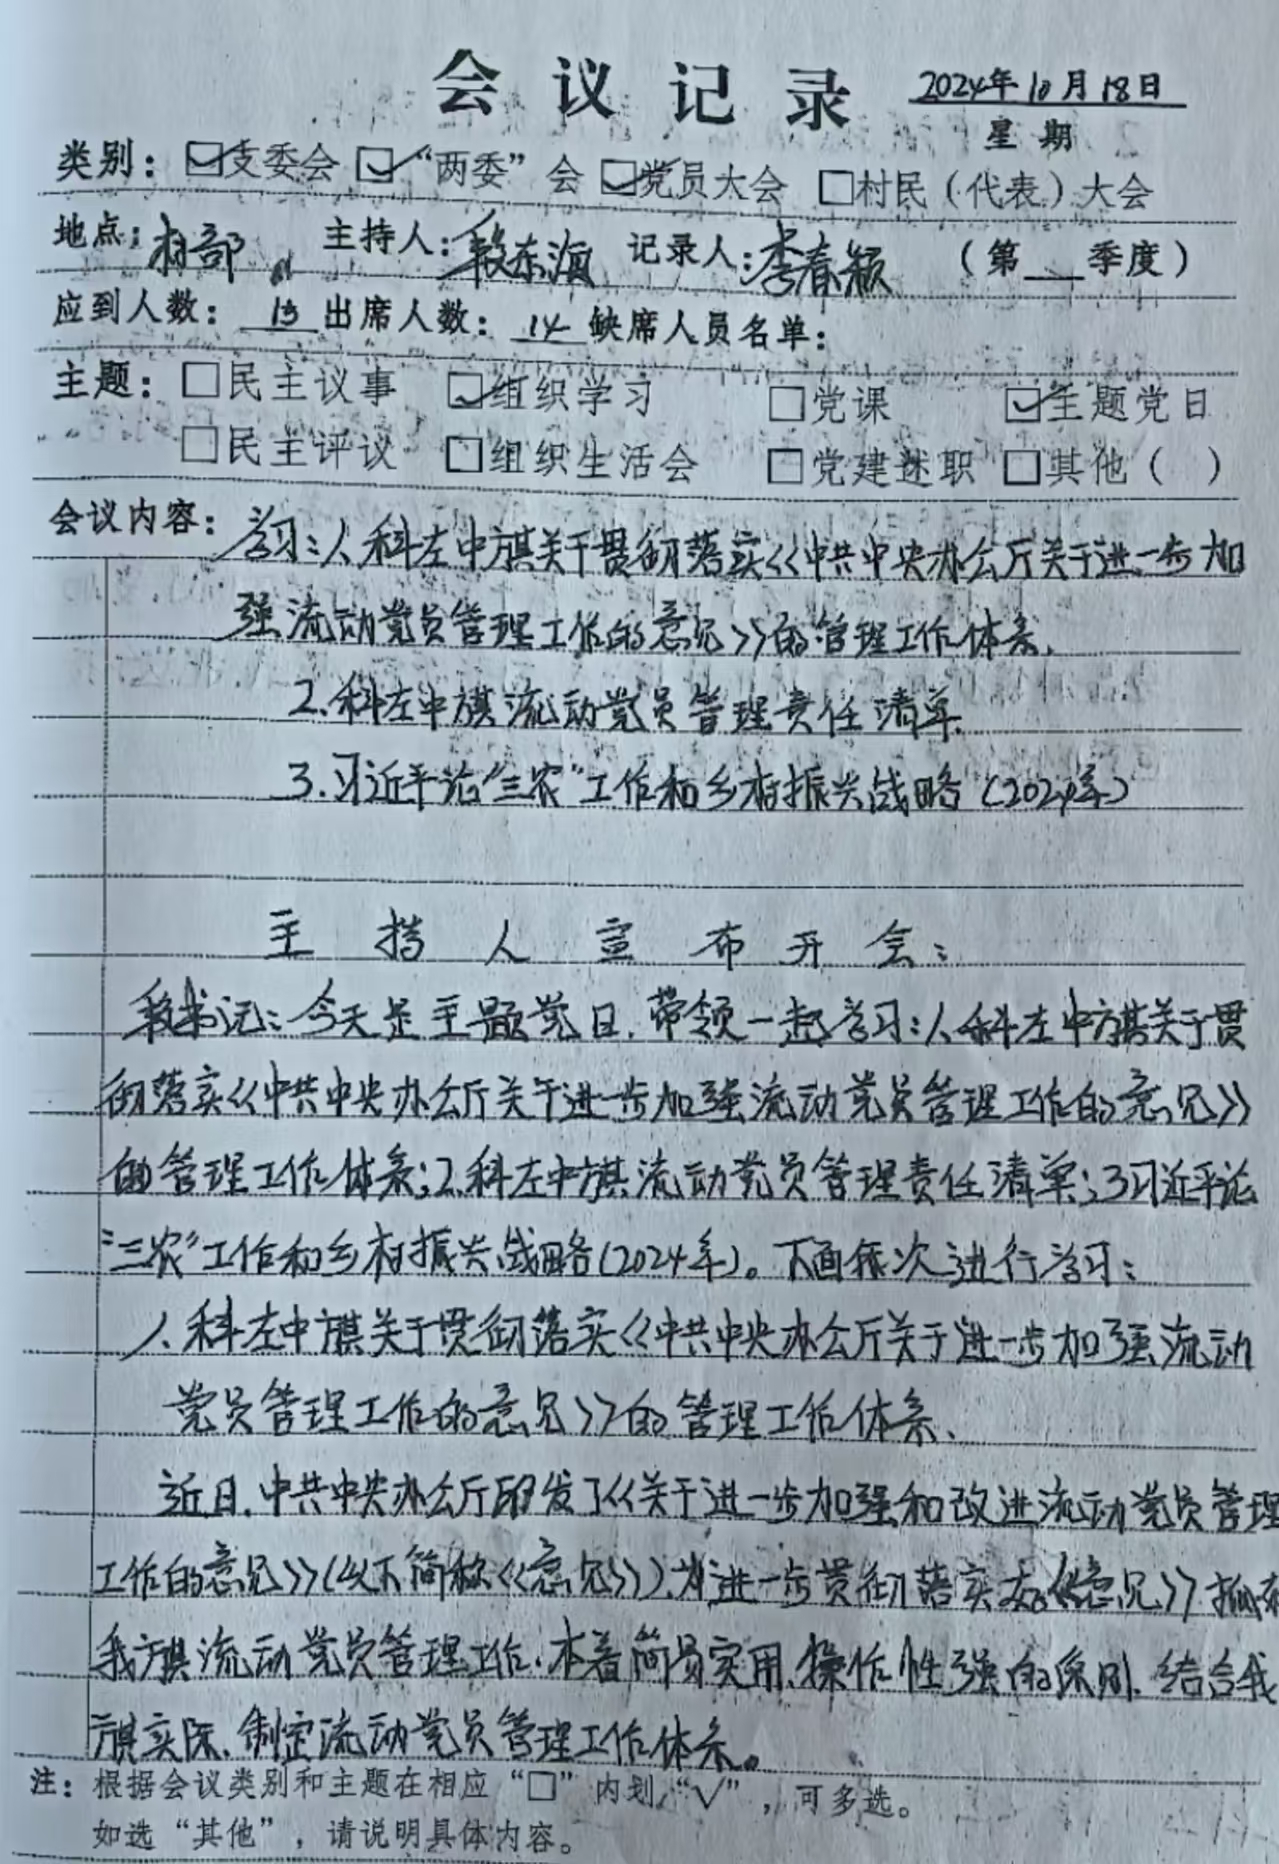 会议记录 2024年10月18日
星期
类别：☑支委会 ☑“两委”会 ☑党员大会 □村民（代表）大会
地点：村部 主持人：段东海 记录人：李春颖 （第 季度）
应到人数： 出席人数：14 缺席人员名单：
主题：□民主议事 ☑组织学习 □党课 ☑主题党日
□民主评议 □组织生活会 □党建述职 □其他（ ）
会议内容：学习：1、科左中旗关于贯彻落实《中共中央办公厅关于进一步加
强流动党员管理工作的意见》的管理工作体系、
2.科左中旗流动党员管理责任清单.
3.习近平论“三农”工作和乡村振兴战略（2024年）
主持人宣布开会：
段书记：今天是主题党日，带领一起学习：1、科左中旗关于贯
彻落实《中共中央办公厅关于进一步加强流动党员管理工作的意见》
的管理工作体系；2.科左中旗流动党员管理责任清单；3习近平论
“三农”工作和乡村振兴战略（2024年）。下面依次进行学习：
1、科左中旗关于贯彻落实《中共中央办公厅关于进一步加强流动
党员管理工作的意见》的管理工作体系、
近日，中共中央办公厅印发了《关于进一步加强和改进流动党员管理
工作的意见》（以下简称《意见》），为进一步贯彻落实好《意见》，抓好
我旗流动党员管理工作，本着简易实用、操作性强的原则，结合我
旗实际，制定流动党员管理工作体系。
注：根据会议类别和主题在相应“□”内划“√”，可多选。
如选“其他”，请说明具体内容。